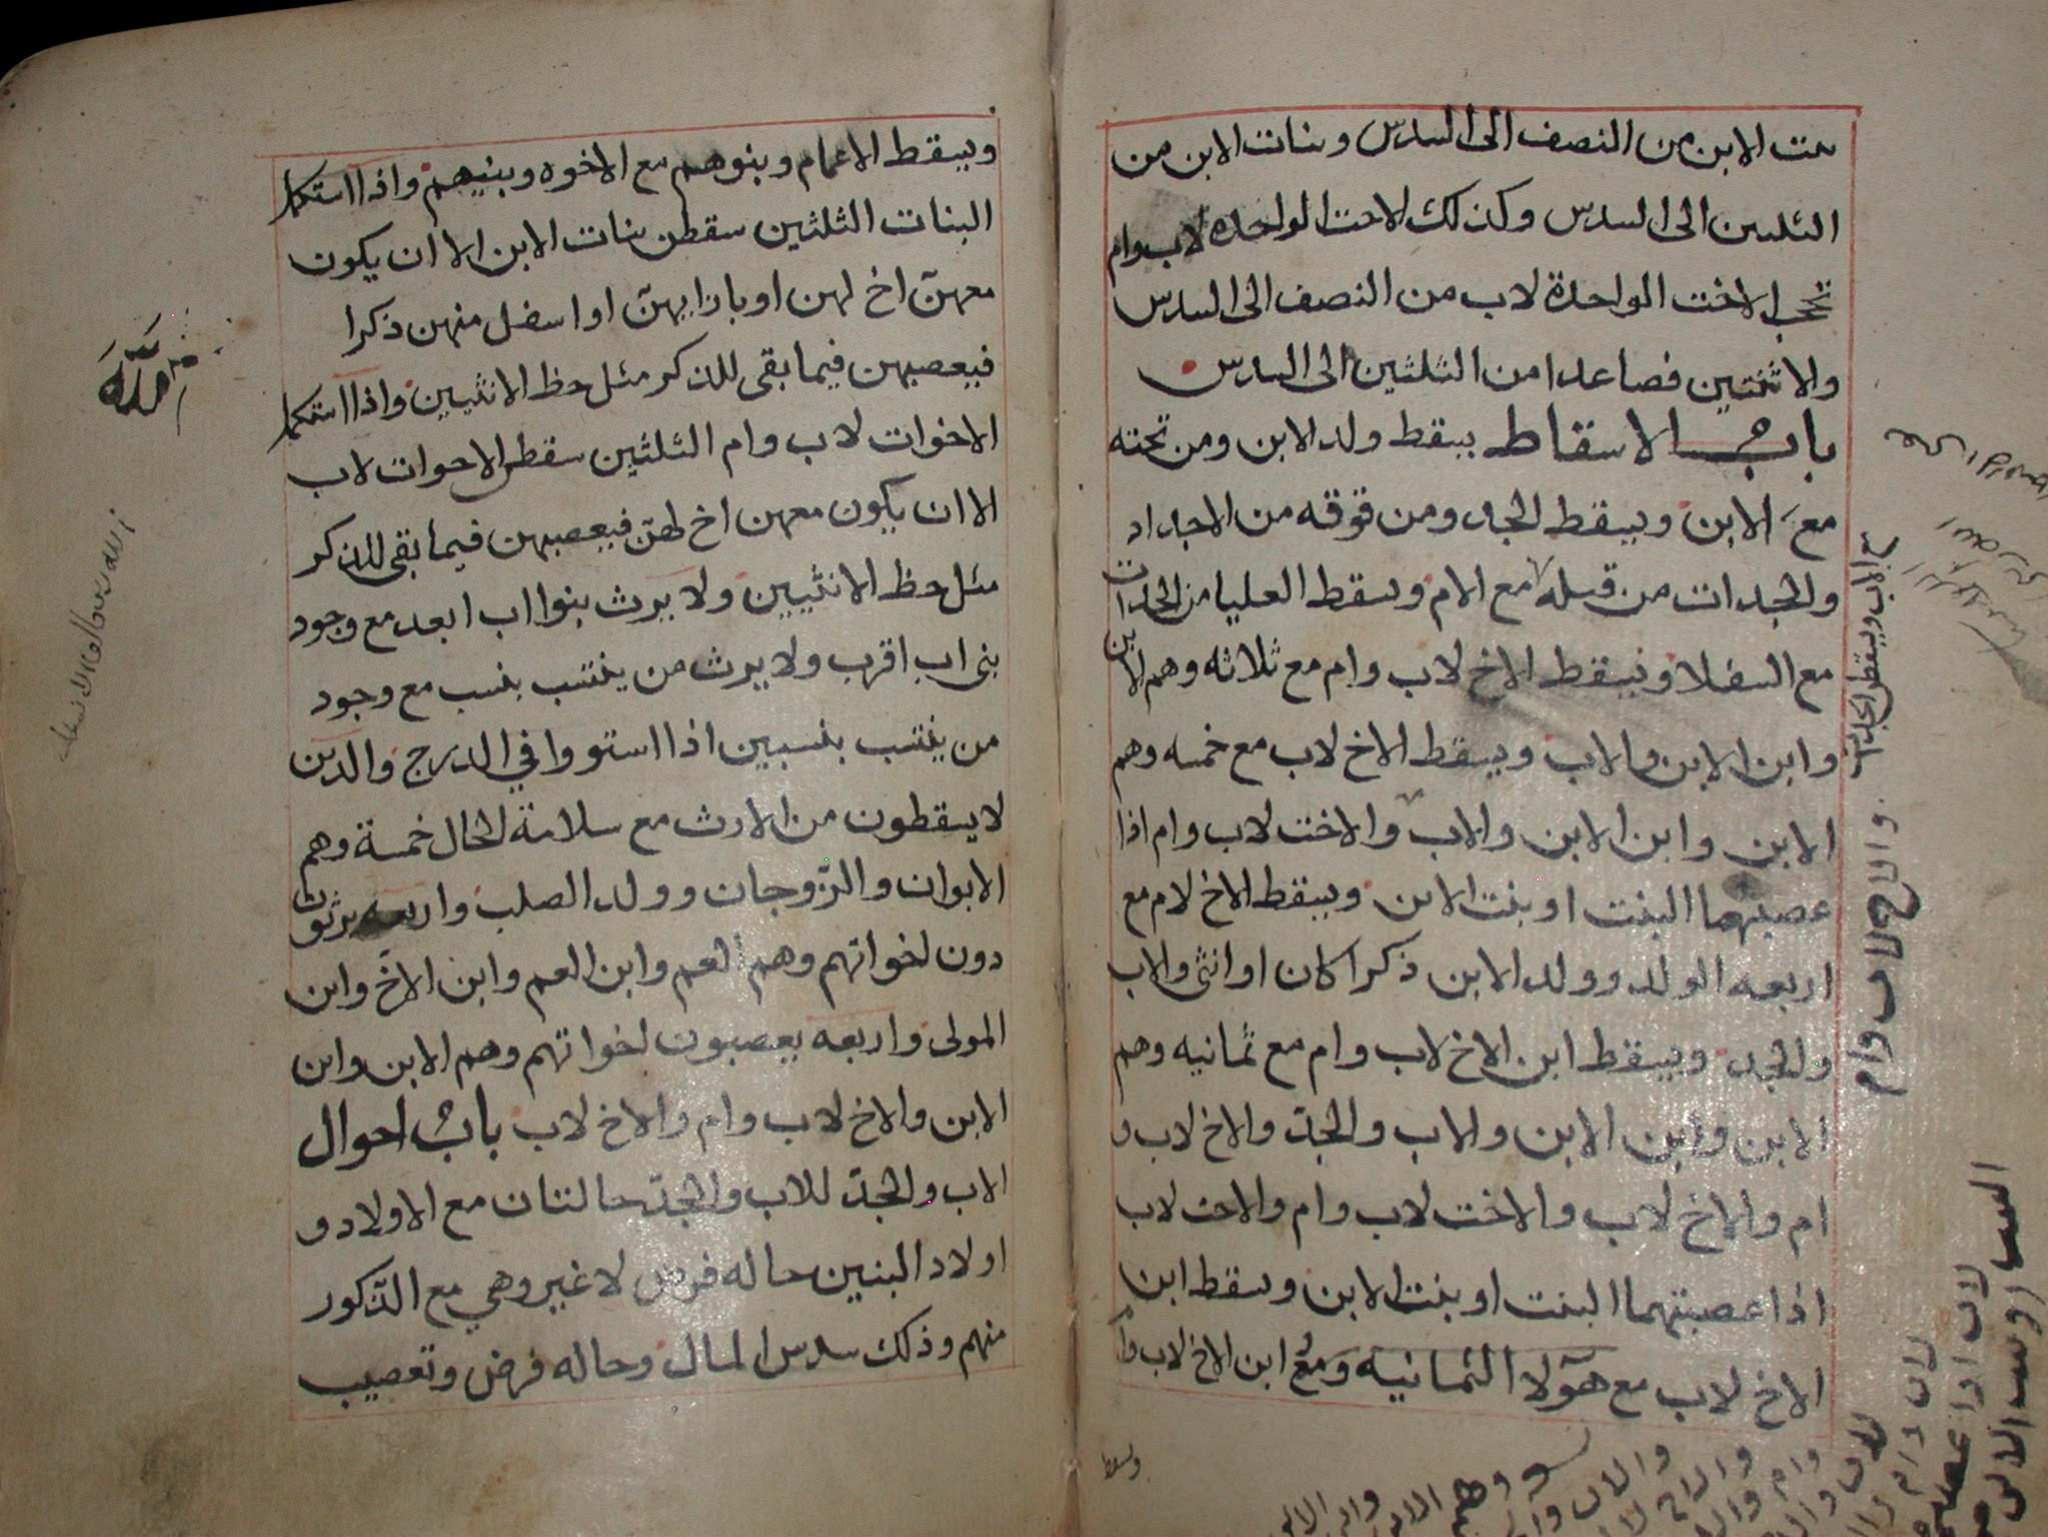 بنت الابن من النصف الى السدس وبنات الابن من
الثلثين الى السدس وكذلك الاخت الواحدة لاب وام
تحجب الاخت الواحدة لاب من النصف الى السدس
والاثنتين فصاعدا من الثلثين الى السدس
باب الاسقاط يسقط ولد الابن ومن تحته
مع الابن ويسقط الجد ومن فوقه من الاجداد
والجدات من قبله مع الام ويسقط العليا من الجدات
مع السفلا ويسقط الاخ لاب وام مع ثلاثه وهم الابن
وابن الابن والاب ويسقط الاخ لاب مع خمسه وهم
الابن وابن الابن والاب والاخت لاب وام اذا
عصبتهما البنت او بنت الابن ويسقط الاخ لام مع
اربعه الولد وولد الابن ذكرا كان او انثى والاب
والجد ويسقط ابن الاخ لاب وام مع ثمانيه وهم
الابن وابن الابن والاب والجد والاخ لاب و
ام والاخ لاب والاخت لاب وام والاخت لاب
اذا عصبتهما البنت او بنت الابن ويسقط ابن
الاخ لاب مع هولا الثمانيه ومع ابن الاخ لاب وام
ويسقط
مع الاب ويسقط الجدات
والاخ لاب وام
ويسقط الاعمام وبنوهم مع الاخوه وبنيهم واذا استكملن
البنات الثلثين سقطن بنات الابن الا ان يكون
معهن اخ لهن او بازايهن او اسفل منهن ذكرا
فيعصبهن فيما بقى للذكر مثل حظ الانثيين واذا استكملن
الاخوات لاب وام الثلثين سقطن الاخوات لاب
الا ان يكون معهن اخ لهن فيعصبهن فيما بقى للذكر
مثل حظ الانثيين ولا يرث بنوا اب ابعد مع وجود
بنى اب اقرب ولا يرث من ينتسب بنسب مع وجود
من ينتسب بنسبين اذا استووا في الدرج والدين
لا يسقطون من الارث مع سلامة الحال خمسة وهم
الابوان والزوجان وولد الصلب واربعه يرثون
دون اخواتهم وهم العم وابن العم وابن الاخ وابن
المولى واربعه يعصبون اخواتهم وهم الابن وابن
الابن والاخ لاب وام والاخ لاب باب احوال
الاب والجد للاب والجد حالتان مع الاولاد و
اولاد البنين حاله فرض لا غير وهي مع الذكور
منهم وذلك سدس المال وحاله فرض وتعصيب